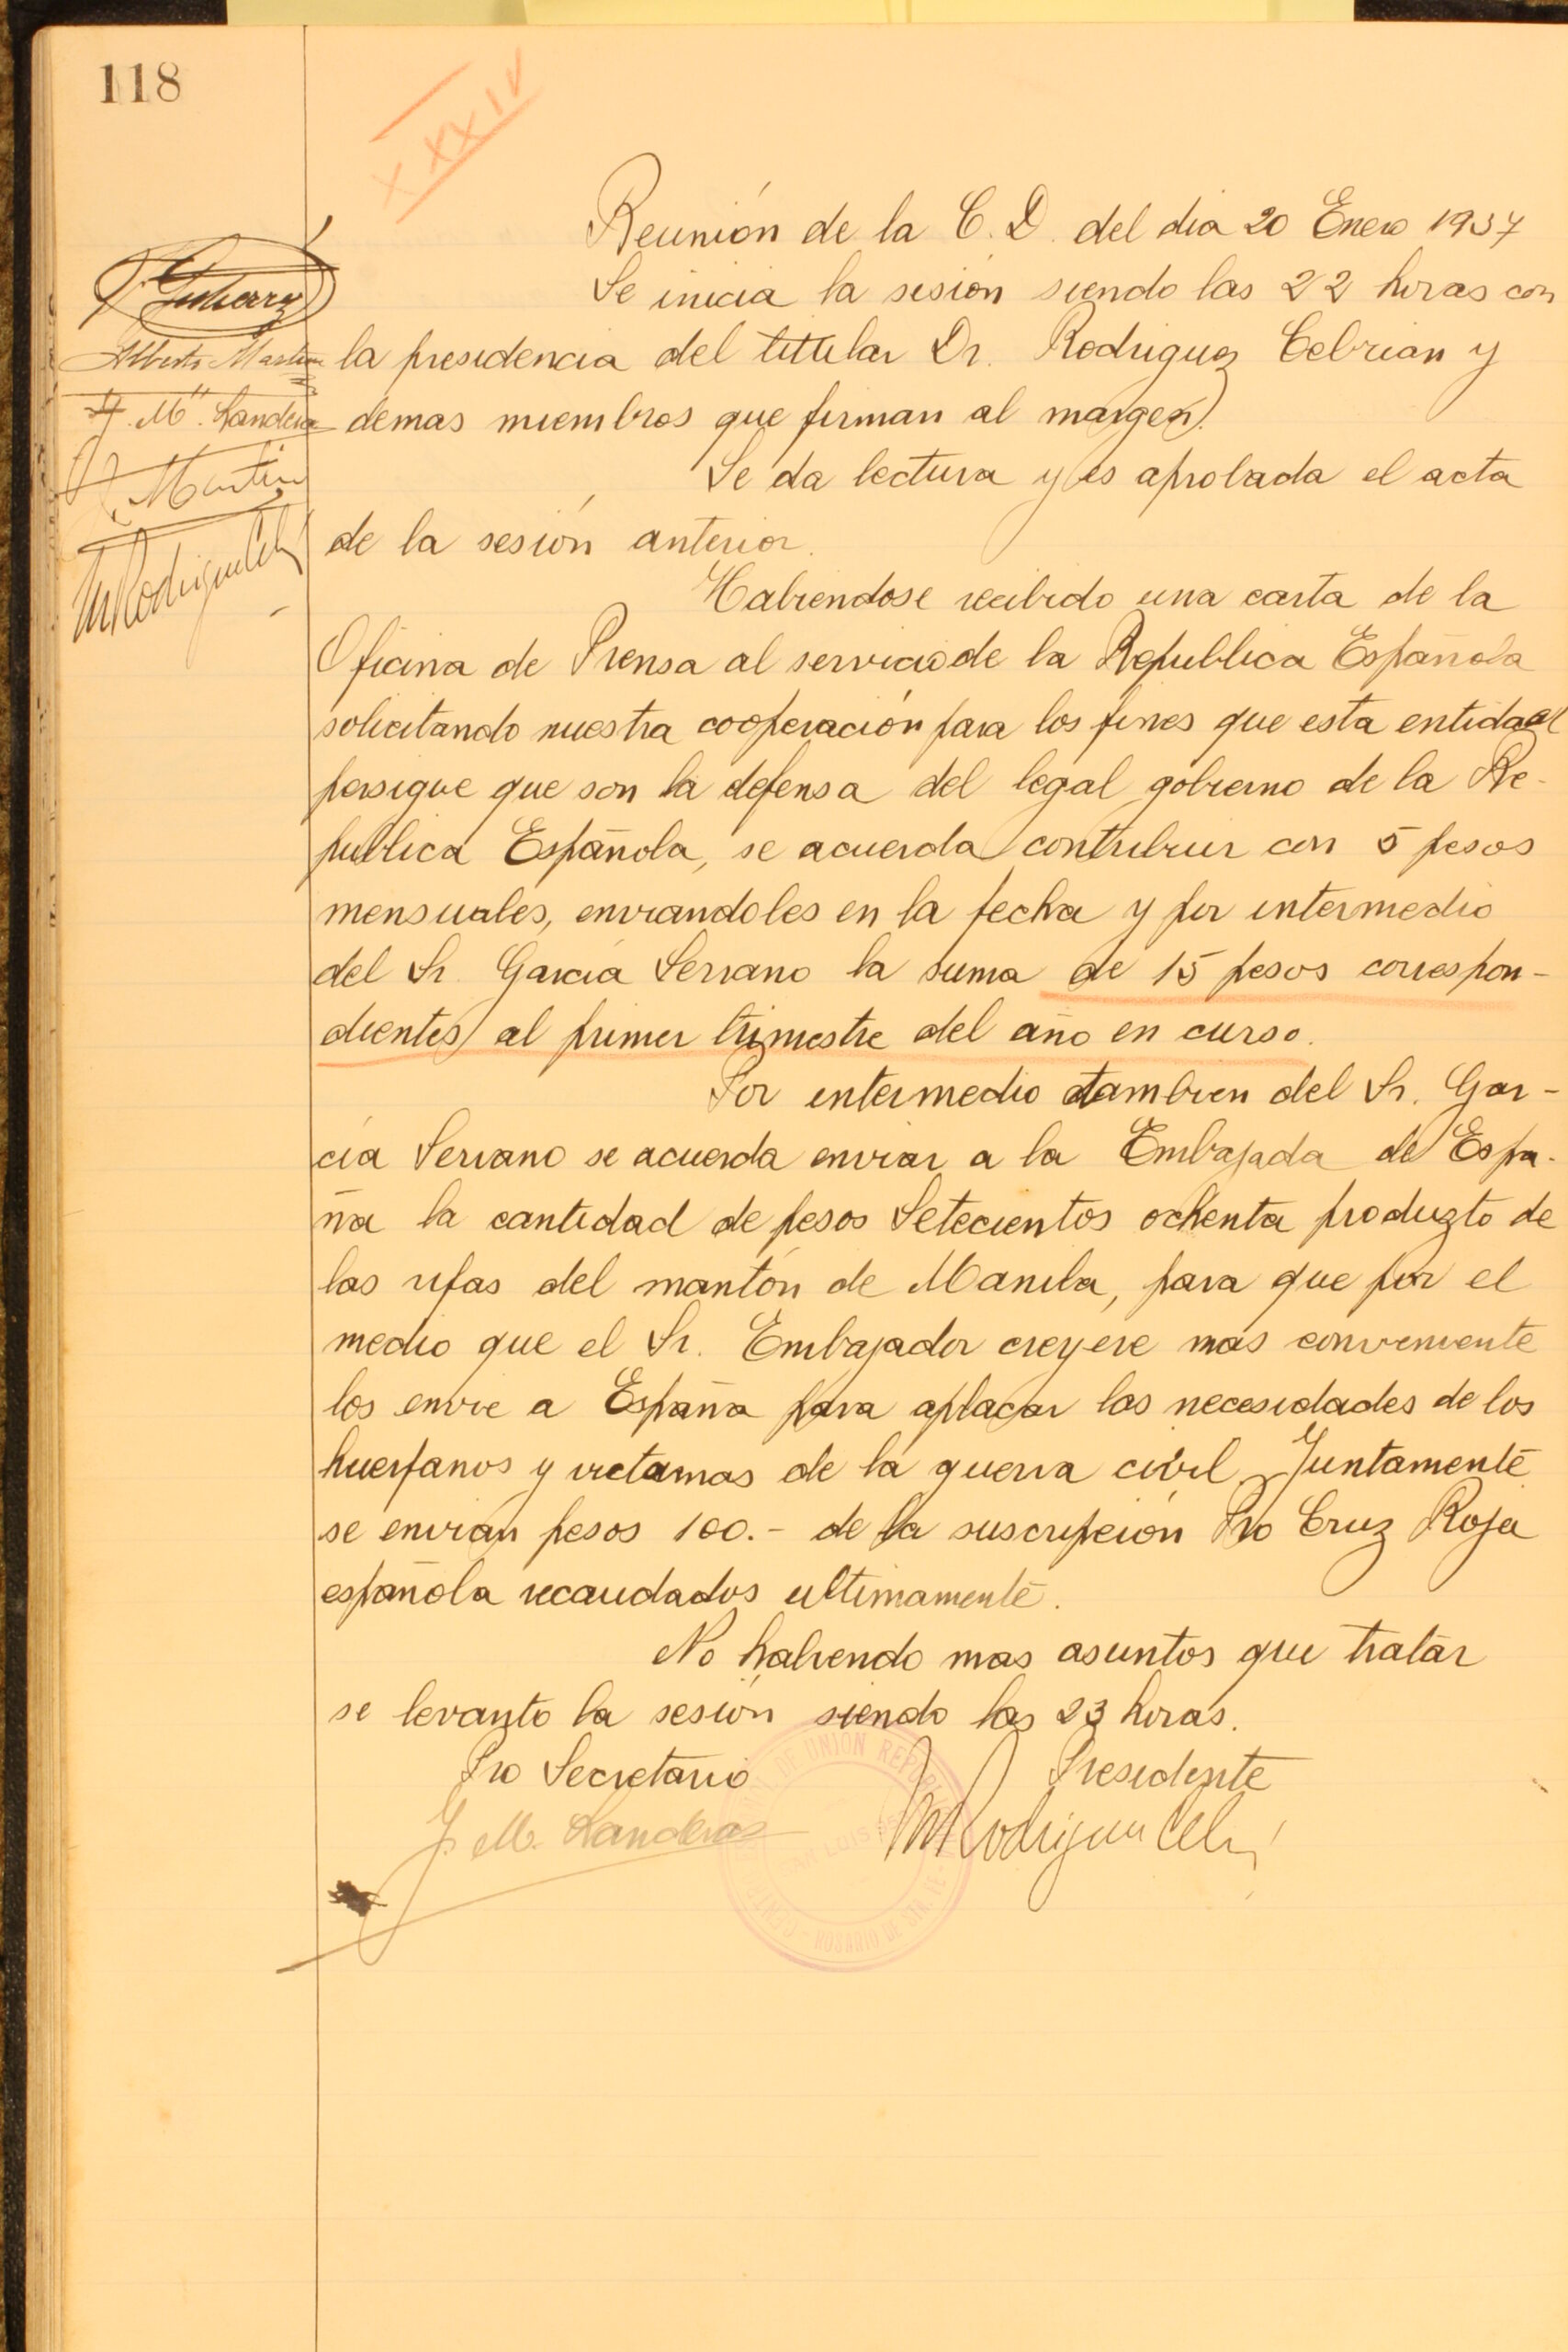 118
XXXIV
Reunión de la C. D. del dia 20 Enero 1937
Se inicia la sesión siendo las 22 horas con
la presidencia del titular Dr. Rodriguez Cebrian y
demas miembros que firman al margen.
Se da lectura y es aprobada el acta
de la sesión anterior.
Habiendose recibido una carta de la
Oficina de Prensa al servicio de la Republica Española
solicitando nuestra cooperación para los fines que esta entidad
persigue que son la defensa del legal gobierno de la Re-
publica Española, se acuerda contribuir con 5 pesos
mensuales, enviandoles en la fecha y por intermedio
del Sr. García Serrano la suma de 15 pesos correspon-
dientes al primer trimestre del año en curso.
Por intermedio tambien del Sr. Gar-
cía Serrano se acuerda enviar a la Embajada de Espa-
ña la cantidad de pesos Setecientos ochenta producto de
las rifas del mantón de Manila, para que por el
medio que el Sr. Embajador creyere mas conveniente
los envie a España para aplacar las necesidades de los
huerfanos y victamas de la guerra civil. Juntamente
se envian pesos 100.- de la suscripción Pro Cruz Roja
española recaudados ultimamente.
No habiendo mas asuntos que tratar
se levanto la sesión siendo las 23 horas.
Pro Secretario Presidente
J. M. Landeras
Alberto Martin
J. Mª. Landeras
Martin
DE UNION REPUBLI
ROSARIO DE STA. FE